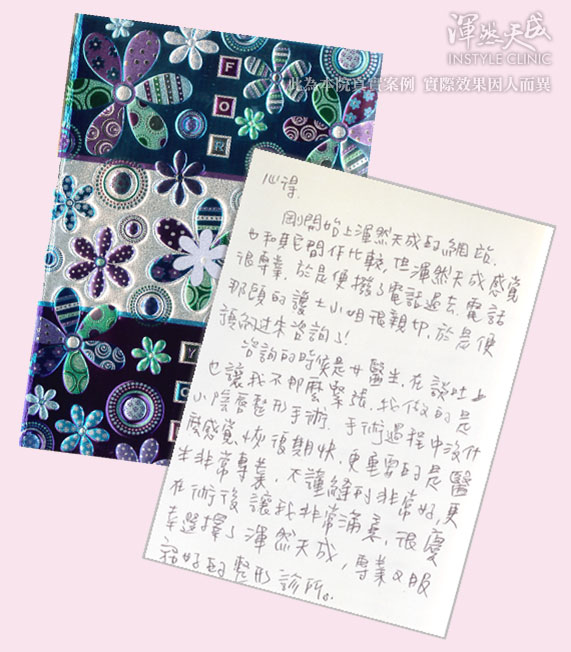 渾然天成
INSTYLE CLINIC
此為本院真實案例 實際效果因人而異
F
O
R
Y
心得
剛開始上渾然天成的網站,
也和其它間作比較,但渾然天成感覺
很專業,於是便撥了電話過去,電話
那頭的護士小姐很親切,於是便
預約過來咨詢了!
咨詢的時候是女醫生,在談吐上
也讓我不那麼緊張,我做的是
小陰唇整形手術,手術過程中沒什
麼感覺,恢復期快,更重要的是醫
生非常專業,不謹縫的非常好,更
在術後讓我非常滿意,很慶
幸選擇了渾然天成,專業又服
務好的整形診所。